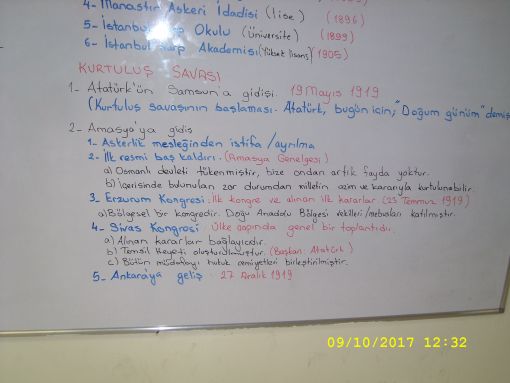 4- Manastır Askeri İdadisi (lise) (1896)
5- İstanbul Harp Okulu (Üniversite) (1899)
6- İstanbul Harp Akademisi (Yüksek lisans) (1905)
KURTULUŞ SAVAŞI
1- Atatürk'ün Samsun'a gidişi. 19 Mayıs 1919
(Kurtuluş savaşının başlaması. Atatürk, bugün için; "Doğum günüm" demiş
2- Amasya'ya gidiş
1- Askerlik mesleğinden istifa / ayrılma
2- İlk resmi baş kaldırı. (Amasya Genelgesi)
a) Osmanlı devleti tükenmiştir, bize ondan artık fayda yoktur.
b) İçerisinde bulunulan zor durumdan milletin azim ve kararıyla kurtulunabilir.
3- Erzurum Kongresi: İlk kongre ve alınan ilk kararlar (23 Temmuz 1919)
a) Bölgesel bir kongredir. Doğu Anadolu Bölgesi vekilleri/mebusları katılmıştır.
4- Sivas Kongresi: Ülke çapında genel bir toplantıdır.
a) Alınan kararlar bağlayıcıdır.
b) Temsil Heyeti oluşturulmuştur. (Başkan: Atatürk)
c) Bütün müdafayı hukuk cemiyetleri birleştirilmiştir.
5- Ankara'ya geliş: 27 Aralık 1919
09/10/2017 12:32